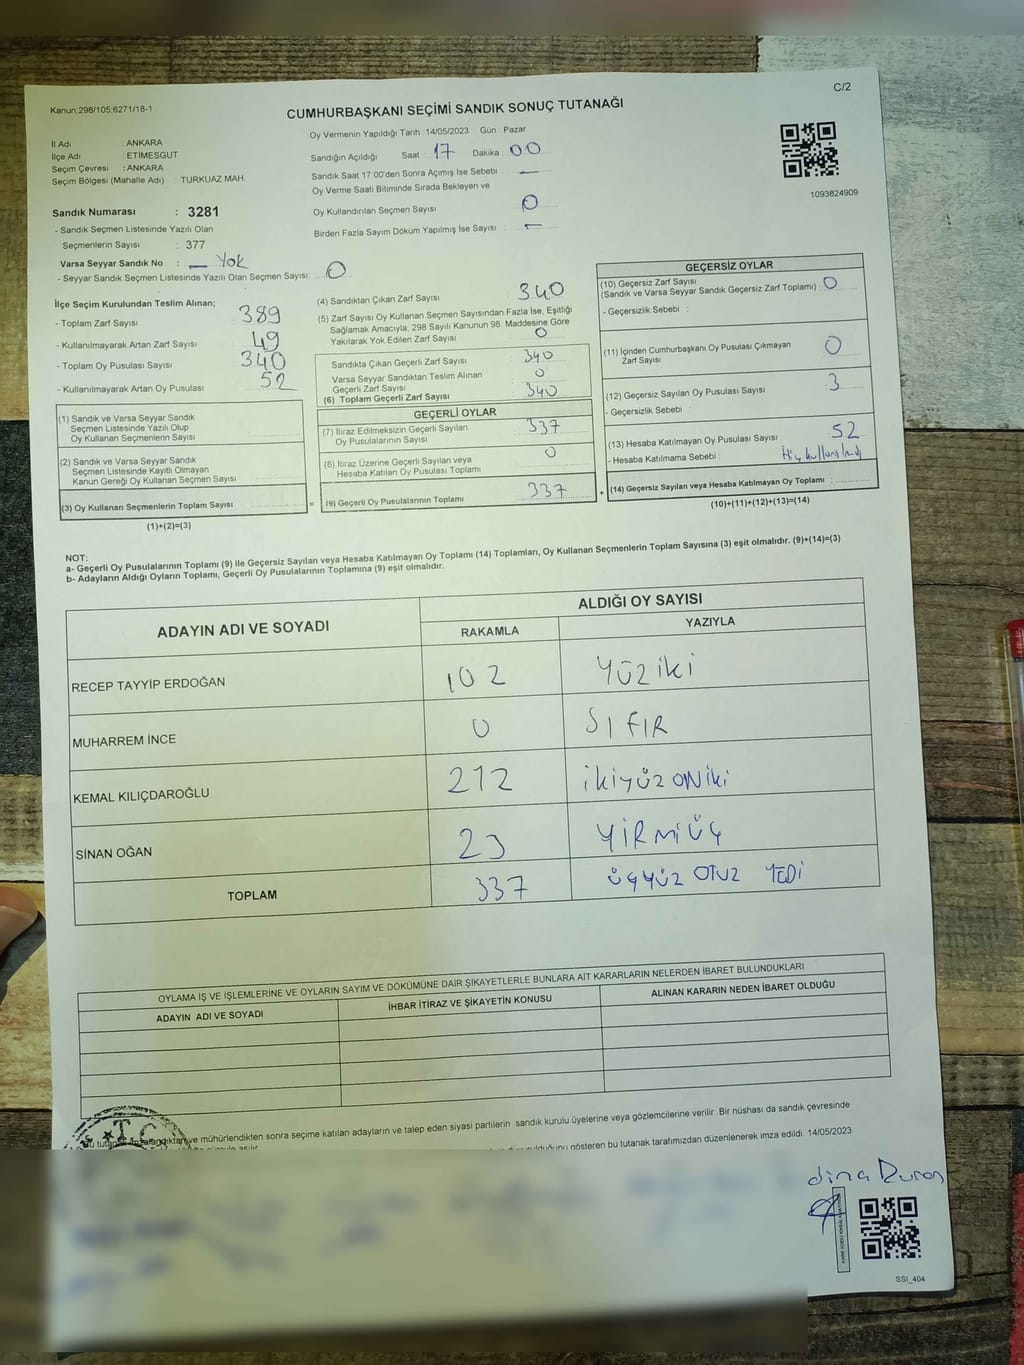 Kanun:298/105;6271/18-1
C/2
CUMHURBAŞKANI SEÇİMİ SANDIK SONUÇ TUTANAĞI
İl Adı : ANKARA
İlçe Adı : ETİMESGUT
Seçim Çevresi : ANKARA
Seçim Bölgesi (Mahalle Adı) TURKUAZ MAH.
Sandık Numarası : 3281
- Sandık Seçmen Listesinde Yazılı Olan
Seçmenlerin Sayısı : 377
Varsa Seyyar Sandık No : — Yok
- Seyyar Sandık Seçmen Listesinde Yazılı Olan Seçmen Sayısı: 0
Oy Vermenin Yapıldığı Tarih :14/05/2023 Gün : Pazar
Sandığın Açıldığı Saat : 17 Dakika : 00
Sandık Saat 17:00'den Sonra Açımış İse Sebebi : —
Oy Verme Saati Bitiminde Sırada Bekleyen ve
Oy Kullandırılan Seçmen Sayısı : 0
Birden Fazla Sayım Döküm Yapılmış İse Sayısı : —
1093824909
İlçe Seçim Kurulundan Teslim Alınan;
- Toplam Zarf Sayısı 389
- Kullanılmayarak Artan Zarf Sayısı 49
- Toplam Oy Pusulası Sayısı 340
- Kullanılmayarak Artan Oy Pusulası 52
(1) Sandık ve Varsa Seyyar Sandık
Seçmen Listesinde Yazılı Olup
Oy Kullanan Seçmenlerin Sayısı
(2) Sandık ve Varsa Seyyar Sandık
Seçmen Listesinde Kayıtlı Olmayan
Kanun Gereği Oy Kullanan Seçmen Sayısı
(3) Oy Kullanan Seçmenlerin Toplam Sayısı
(1)+(2)=(3)
=
(4) Sandıktan Çıkan Zarf Sayısı 340
(5) Zarf Sayısı Oy Kullanan Seçmen Sayısından Fazla İse, Eşitliği
Sağlamak Amacıyla; 298 Sayılı Kanunun 98. Maddesine Göre
Yakılarak Yok Edilen Zarf Sayısı 0
Sandıkta Çıkan Geçerli Zarf Sayısı 340
Varsa Seyyar Sandıktan Teslim Alınan
Geçerli Zarf Sayısı 0
(6) Toplam Geçerli Zarf Sayısı 340
GEÇERLİ OYLAR
(7) İtiraz Edilmeksizin Geçerli Sayılan
Oy Pusulalarının Sayısı 337
(8) İtiraz Üzerine Geçerli Sayılan veya
Hesaba Katılan Oy Pusulası Toplamı 0
(9) Geçerli Oy Pusulalarının Toplamı 337
+
GEÇERSİZ OYLAR
(10) Geçersiz Zarf Sayısı
(Sandık ve Varsa Seyyar Sandık Geçersiz Zarf Toplamı) : 0
- Geçersizlik Sebebi :
(11) İçinden Cumhurbaşkanı Oy Pusulası Çıkmayan
Zarf Sayısı 0
(12) Geçersiz Sayılan Oy Pusulası Sayısı 3
- Geçersizlik Sebebi :
(13) Hesaba Katılmayan Oy Pusulası Sayısı 52
- Hesaba Katılmama Sebebi : Hiç kullanılmadı
(14) Geçersiz Sayılan veya Hesaba Katılmayan Oy Toplamı :
(10)+(11)+(12)+(13)=(14)
NOT:
a- Geçerli Oy Pusulalarının Toplamı (9) ile Geçersiz Sayılan veya Hesaba Katılmayan Oy Toplamı (14) Toplamları, Oy Kullanan Seçmenlerin Toplam Sayısına (3) eşit olmalıdır. (9)+(14)=(3)
b- Adayların Aldığı Oyların Toplamı, Geçerli Oy Pusulalarının Toplamına (9) eşit olmalıdır.
ADAYIN ADI VE SOYADI
ALDIĞI OY SAYISI
RAKAMLA YAZIYLA
RECEP TAYYİP ERDOĞAN 102 Yüz iki
MUHARREM İNCE 0 SIFIR
KEMAL KILIÇDAROĞLU 212 ikiyüz oniki
SİNAN OĞAN 23 YİRMİ ÜÇ
TOPLAM 337 ÜÇYÜZ OTUZ YEDİ
OYLAMA İŞ VE İŞLEMLERİNE VE OYLARIN SAYIM VE DÖKÜMÜNE DAİR ŞİKAYETLERLE BUNLARA AİT KARARLARIN NELERDEN İBARET BULUNDUKLARI
ADAYIN ADI VE SOYADI İHBAR İTİRAZ VE ŞİKAYETİN KONUSU ALINAN KARARIN NEDEN İBARET OLDUĞU
T.C.
mühürlendikten sonra seçime katılan adayların ve talep eden siyasi partilerin sandık kurulu üyelerine veya gözlemcilerine verilir. Bir nüshası da sandık çevresinde
gösteren bu tutanak tarafımızdan düzenlenerek imza edildi. 14/05/2023
SSI_404